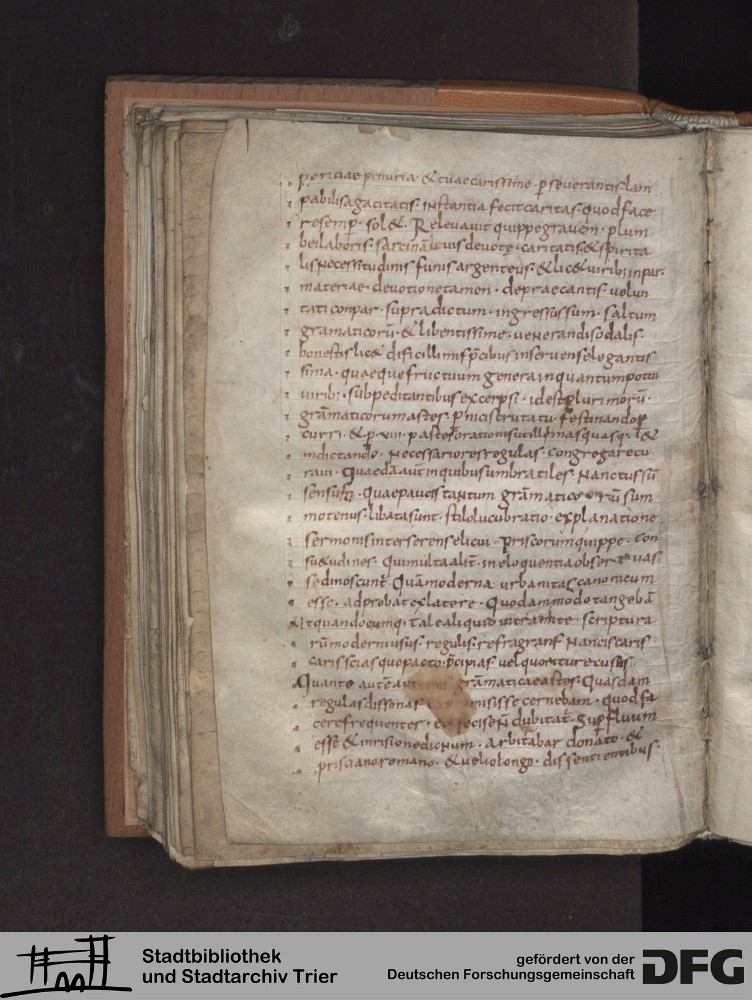 periciae penuria · & tuae carissime · ꝑseverantis lam
pabilis agacitatis · instantia fecit caritas · quod face
re semꝑ · sol& · Relevavit quippe gravem · plum
bei laboris · sarcinā · devotę · caritatis & spirita
lis necessitudinis funis argenteus · & lic& virib; inpar·
materiae · devotione tamen · depraecantis · volun
tati conpar · supradictum · ingressus sum · saltum
gramaticorū · & libentissime · venerandi sodalis ·
honestis lic& dificillimis p̄cibus inserviens elegantis
sima · quaeque fructuum genera inquantum potui
virib; · subpeditantibus excerpsi · id est plurimorū ·
grāmaticorum astes · festinando
curri · & ꝑ · viii · partes orationis
indictando · necessariores regulas · congregare cu
ravi · Quaedā aut̄ in quibus umbratiles · nanctus sū
sensus · Quae paucis tantum grāmaticorū sum
motenus · libata sunt · stilo lucubratio · explanatione
sermonis interserens elicui · Priscorum quippe · con
su&udines · Qui multa alit̄ · in eloquentia observas
se dinoscunt̄ · Quā moderna urbanitas canonicum
esse · adprobat ex latere · Quodammodo tangebā
At quandocumq; tale aliquid intra scriptura
rū modernius usus · regulis · refragrant̄ nanciscaris
scias quo pacto · p̄cipias vel
Quanto autē grāmaticae astes · Quasdam
regulas cernebam · quod fa
cere frequenter · dubitat̄ · Supfluum
esse & inrisione dignum · arbitabar donato · &
prisciano romano · & velio longo · dissentientibus ·
Stadtbibliothek
und Stadtarchiv Trier
gefördert von der
Deutschen Forschungsgemeinschaft
DFG